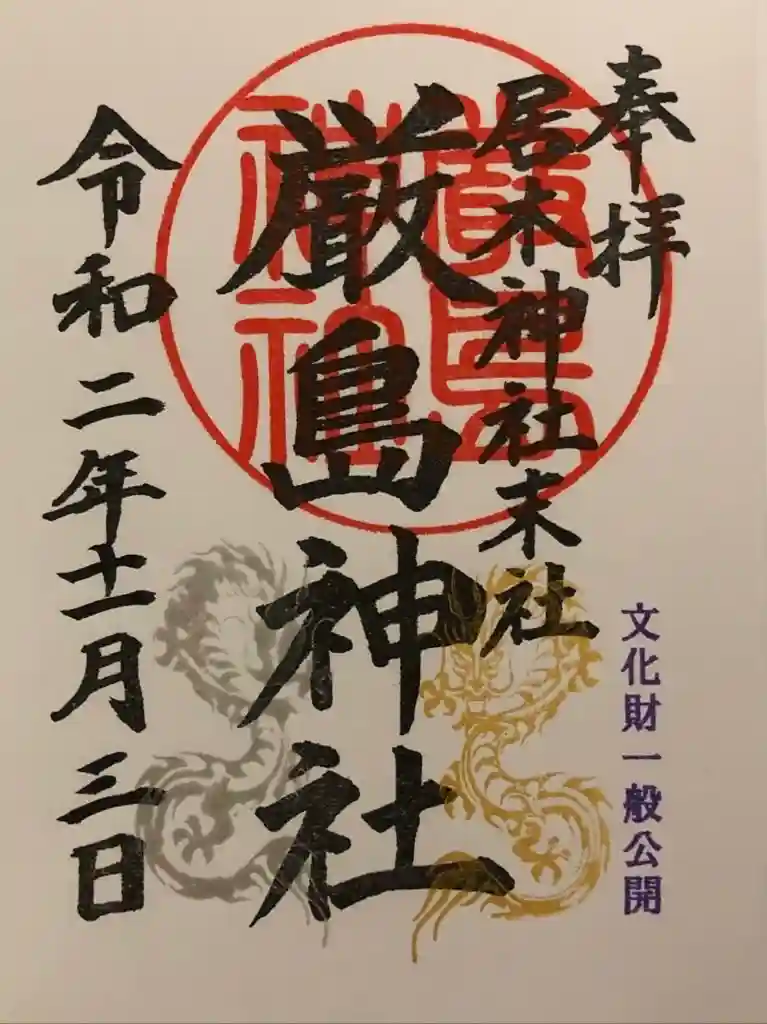 奉拝
居木神社末社
厳島神社
令和二年十一月三日
文化財一般公開